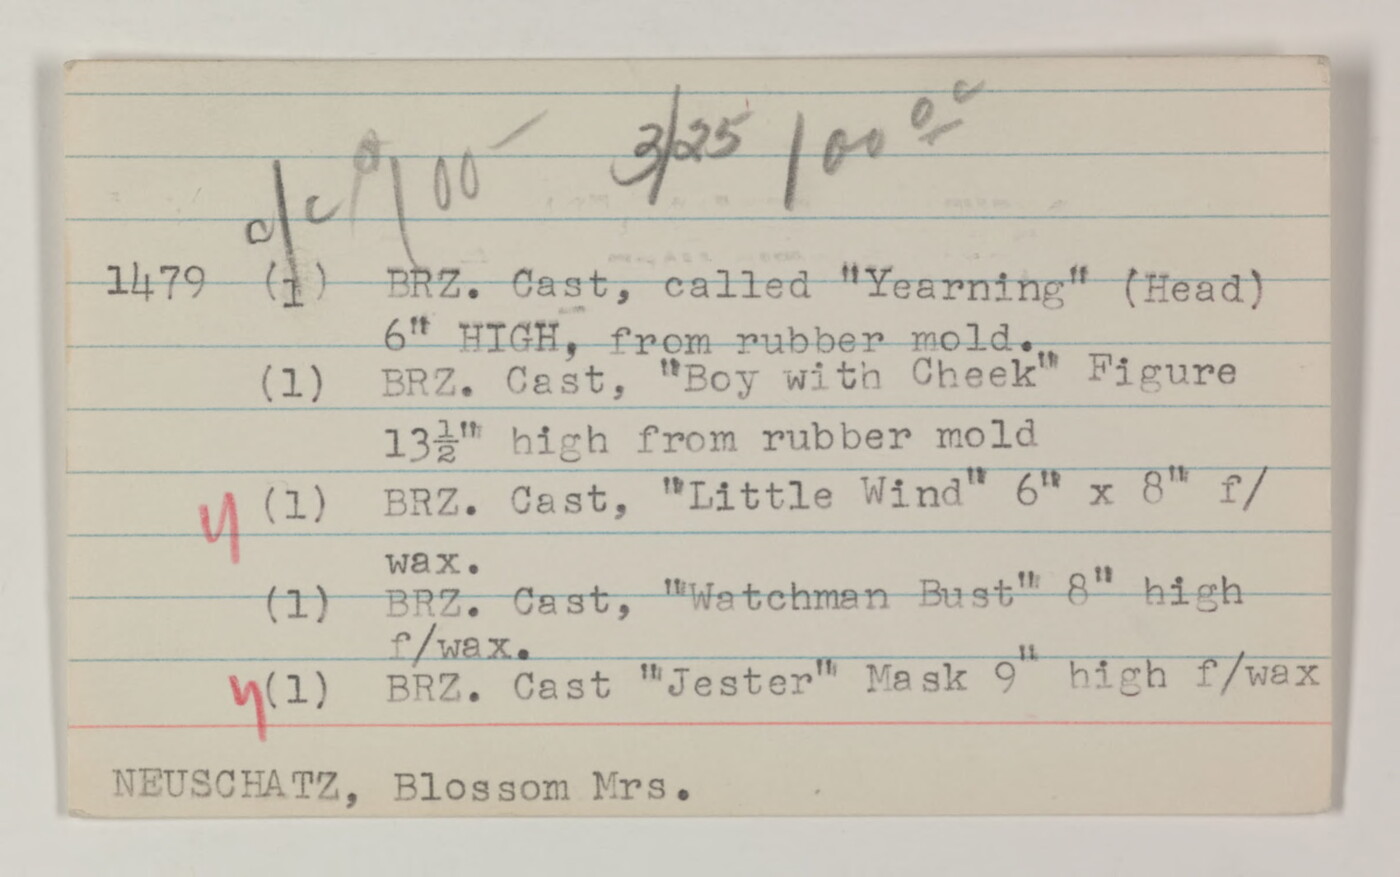 o/c 9/ 00 3/25 100 00
1479 (1) BRZ. Cast, called "Yearning" (Head)
6" HIGH, from rubber mold.
(1) BRZ. Cast, "Boy with Cheek" Figure
13½" high from rubber mold
(1) BRZ. Cast, "Little Wind" 6" x 8" f/
wax.
(1) BRZ. Cast, "Watchman Bust" 8" high
f/wax.
(1) BRZ. Cast "Jester" Mask 9" high f/wax
NEUSCHATZ, Blossom Mrs.